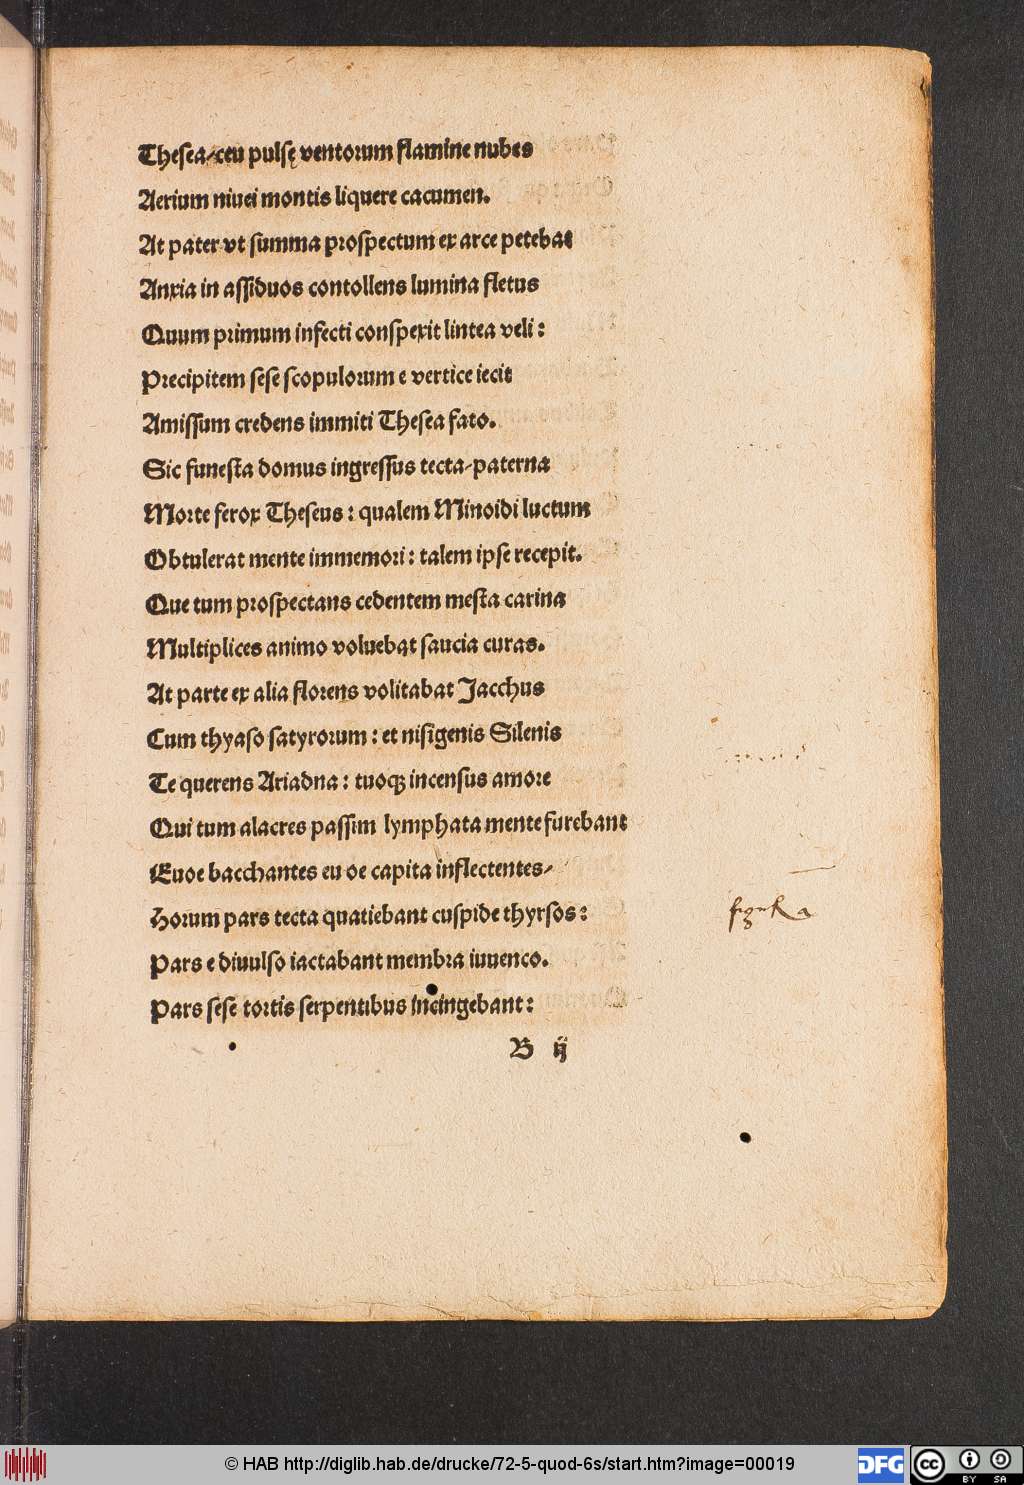 Thesea/ceu pulsę ventorum flamine nubes
Aerium niuei montis liquere cacumen.
At pater vt summa prospectum ex arce petebat
Anxia in assiduos contollens lumina fletus
Quum primum infecti conspexit lintea veli:
Precipitem sese scopulorum e vertice iecit
Amissum credens immiti Thesea fato.
Sic funesta domus ingressus tecta/paterna
Morte ferox Theseus: qualem Minoidi luctum
Obtulerat mente immemori: talem ipse recepit.
Que tum prospectans cedentem mesta carina
Multiplices animo voluebat saucia curas.
At parte ex alia florens volitabat Jacchus
Cum thyaso satyrorum: et nisigenis Silenis
Te querens Ariadna: tuoqꝫ incensus amore
Qui tum alacres passim lymphata mente furebant
Euoe bacchantes eu oe capita inflectentes/
Horum pars tecta quatiebant cuspide thyrsos:
Pars e diuulso iactabant membra iuuenco.
Pars sese tortis serpentibus incingebant:
B ij
© HAB http://diglib.hab.de/drucke/72-5-quod-6s/start.htm?image=00019
DFG
cc
BY SA